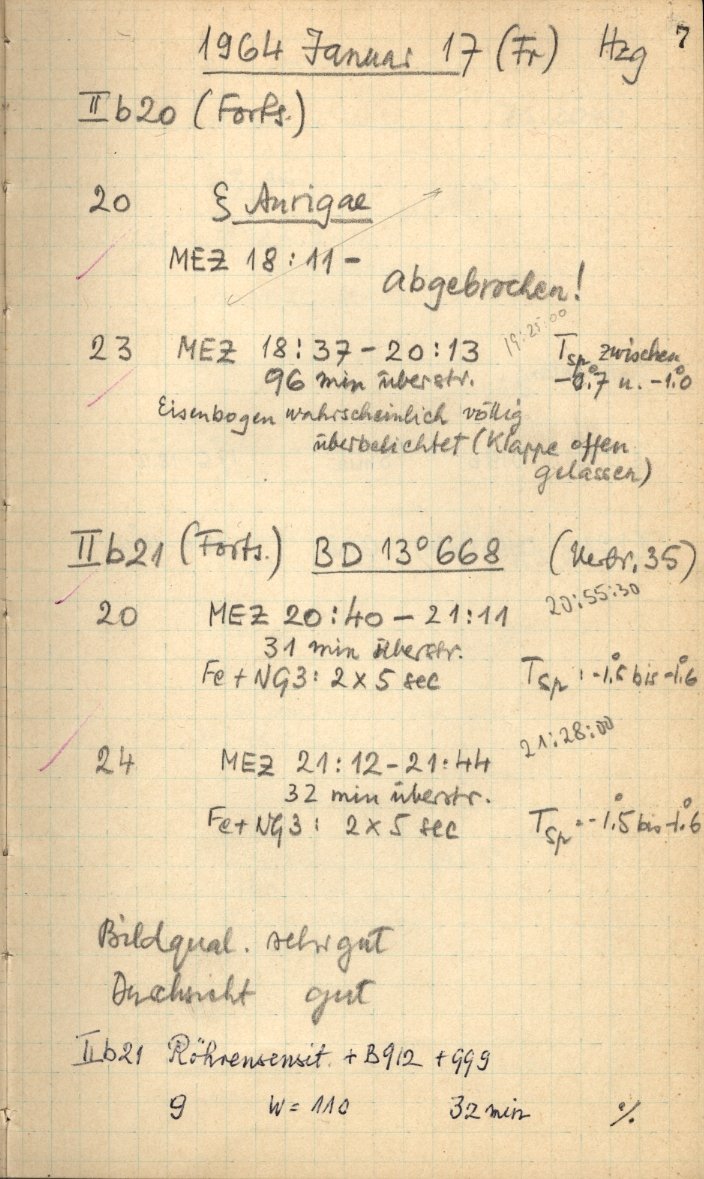 1964 Januar 17 (Fr) Hzg 7
II b20 (Forts.)
20 ξ Aurigae
MEZ 18:11 -
abgebrochen!
19:25:00
23 MEZ 18:37 - 20:13 Tsp zwischen
96 min überstr. -0°.7 u. -1°.0
Eisenbogen wahrscheinlich völlig
überbelichtet (Klappe offen
gelassen)
II b21 (Forts.) BD 13°668 (35)
20:55:30
20 MEZ 20:40 - 21:11
31 min überstr.
Fe + NG3: 2 x 5 sec Tsp: -1°.5 bis -1°.6
21:28:00
24 MEZ 21:12 - 21:44
32 min überstr.
Fe + NG3: 2 x 5 sec Tsp = -1°.5 bis -1°.6
Bildqual. sehr gut
Durchsicht gut
II b21 Röhrensensit. + B912 + G99
9 W = 110 32 min ./.